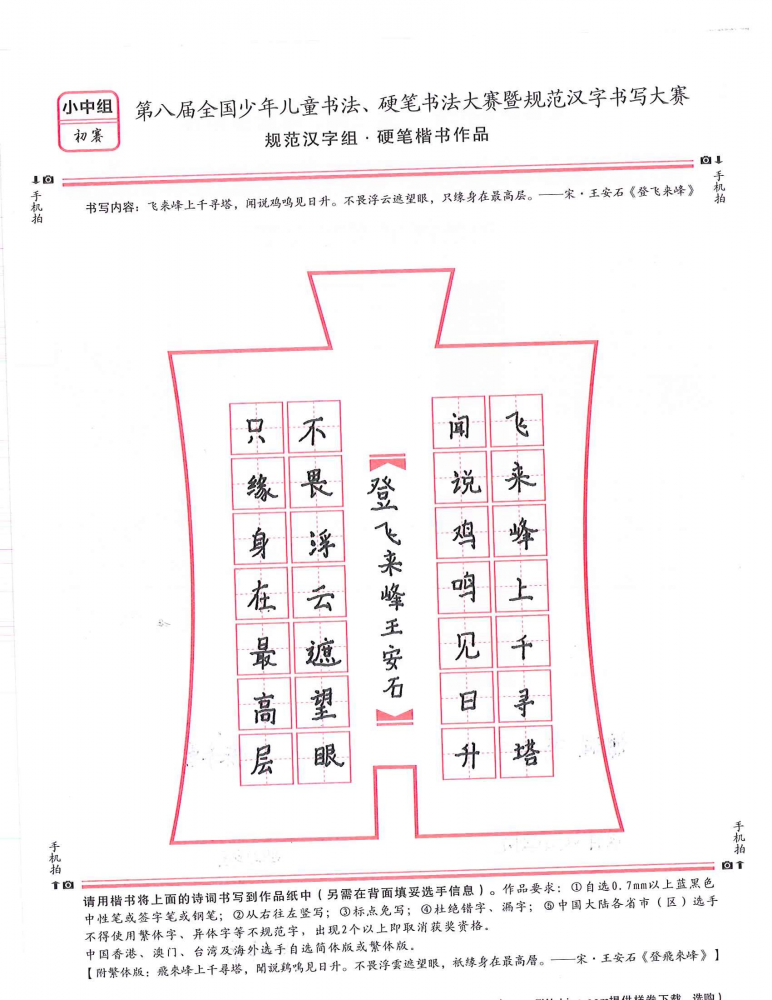 小中组
初赛
第八届全国少年儿童书法、硬笔书法大赛暨规范汉字书写大赛
规范汉字组·硬笔楷书作品
手机拍
手机拍
书写内容：飞来峰上千寻塔，闻说鸡鸣见日升。不畏浮云遮望眼，只缘身在最高层。——宋·王安石《登飞来峰》
飞来峰上千寻塔
闻说鸡鸣见日升
登飞来峰王安石
不畏浮云遮望眼
只缘身在最高层
手机拍
手机拍
请用楷书将上面的诗词书写到作品纸中（另需在背面填妥选手信息）。作品要求：①自选0.7mm以上蓝黑色
中性笔或签字笔或钢笔；②从右往左竖写；③标点免写；④杜绝错字、漏字；⑤中国大陆各省市（区）选手
不得使用繁体字、异体字等不规范字，出现2个以上即取消获奖资格。
中国香港、澳门、台湾及海外选手自选简体版或繁体版。
【附繁体版：飛來峰上千尋塔，聞說鷄鳴見日升。不畏浮雲遮望眼，祇緣身在最高層。——宋·王安石《登飛來峰》】
提供样卷下载、选购）